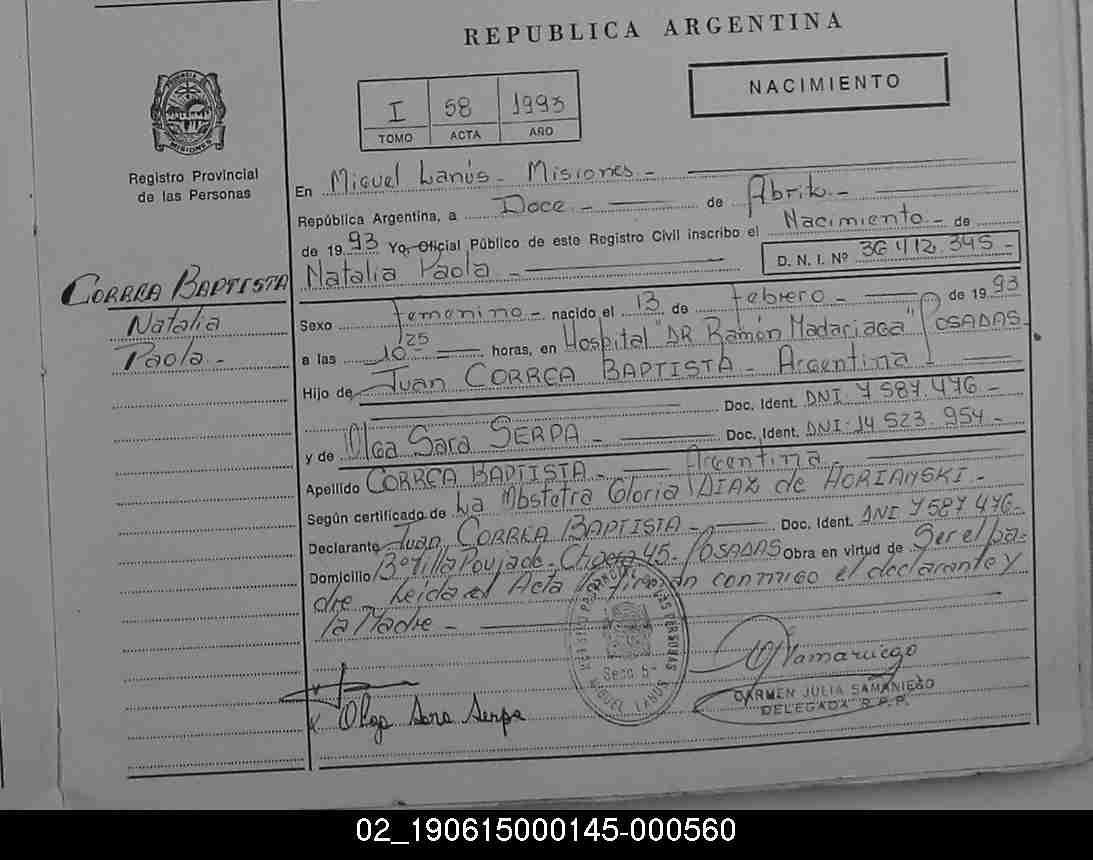 REPUBLICA ARGENTINA
NACIMIENTO
I 58 1993
TOMO ACTA AÑO
PROVINCIA DE
MISIONES
Registro Provincial
de las Personas
En Miguel Lanús - Misiones -
República Argentina, a Doce - de Abril -
de 1993 Yo, Oficial Público de este Registro Civil inscribo el Nacimiento - de
Natalia Paola - D. N. I. Nº 36 412.345 -
CORREA BAPTISTA
Natalia
Paola -
Sexo Femenino - nacido el 13 de febrero - de 1993
a las 10 25 horas, en Hospital "DR Ramón Madariaga" POSADAS
Hijo de Juan CORREA BAPTISTA - Argentina
Doc. Ident. DNI. 7 587.476 -
y de Olga Sara SERPA - Doc. Ident. DNI: 14 523.954 -
Argentina
Apellido CORREA BAPTISTA -
Según certificado de La Obstetra Gloria DIAZ de HORIANSKI -
Declarante Juan CORREA BAPTISTA - Doc. Ident. DNI 7587 476 -
Domicilio Bº Villa Poujade - Chacra 45 - POSADAS Obra en virtud de Ser el pa-
dre - Leida el Acta la firman conmigo el declarante y
la Madre -
Secc 5-
MIGUEL LANUS
CARMEN JULIA SAMANIEGO
DELEGADA R.P.P.
Olga Sara Serpa
02_190615000145-000560